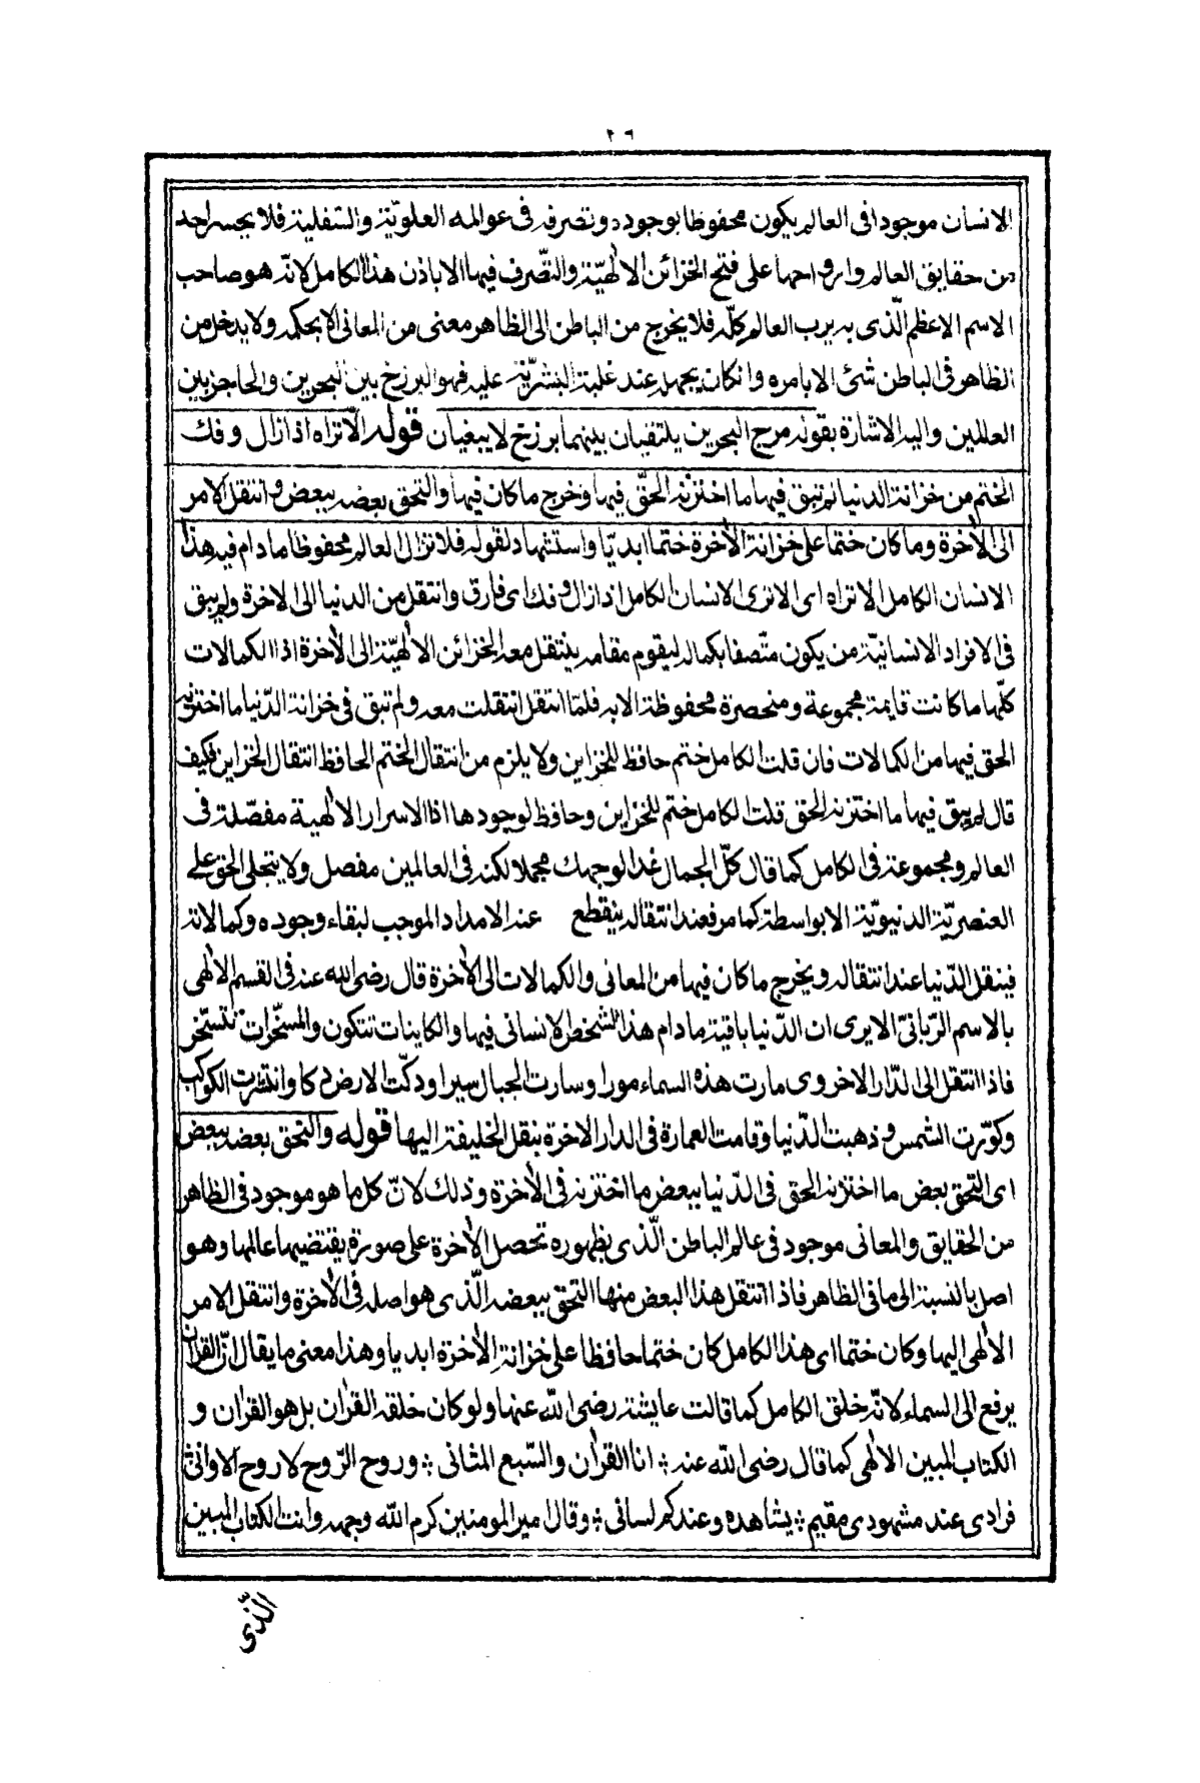 ٢٦
الانسان موجودا فى العالم يكون محفوظا بوجوده وتصرفه فى عوالمه العلويّة والسّفلية فلا يجسر احد
من حقايق العالم وارواحها على فتح الخزائن الالٰهيّة والتّصرف فيها الا باذن هذا الكامل لانّه هو صاحب
الاسم الاعظم الّذى به يرب العالم كلّه فلا يخرج من الباطن الى الظاهر معنى من المعانى الا بحكمه ولا يدخل من
الظاهر فى الباطن شئ الا بامره وان كان يجهله عند غلبة البشريّة عليه فهو البرزخ بين البحرين والحاجز بين
العالمين واليه الاشارة بقوله مرج البحرين يلتقيان بينهما برزخ لا يبغيان قوله الا تراه اذا زال وفك
الختم من خزانة الدنيا لم تبق فيها ما اختزنه الحقّ فيها وخرج ما كان فيها والتحق بعضه ببعض وانتقل الامر
الى الٰاخرة وما كان ختما على خزانة الٰاخرة ختما ابديّا واستشهاد لقوله فلا تزال العالم محفوظا ما دام فيه هذا
الانسان الكامل الا تراه اى الا ترى الانسان الكامل اذا زال وفك اى فارق وانتقل من الدنيا الى الاخرة ولم يبق
فى الافراد الانسانيّة من يكون متّصفا بكماله ليقوم مقامه ينتقل معه الخزائن الالٰهيّة الى الٰاخرة اذا الكمالات
كلّها ما كانت قايمة مجموعة ومنحصرة محفوظة الا به فلمّا انتقل انتقلت معه ولم تبق فى خزانة الدّنيا ما اختزنه
الحق فيها من الكمالات فان قلت الكامل ختم حافظ للخزاين ولا يلزم من انتقال الختم الحافظ انتقال الخزاين فكيف
قال لم يبق فيها ما اختزنه الحق قلت الكامل ختم للخزاين وحافظ لوجودها اذا الاسرار الالٰهية مفصّلة فى
العالم ومجموعة فى الكامل كما قال كلّ الجمال غدا لوجهك مجملا لكنه فى العالمين مفصل ولا يتجلى الحق على
العنصريّة الدنيويّة الا بواسطة كما مر فعند انتقاله ينقطع عنه الامداد الموجب لبقاء وجوده وكمالاته
فينقل الدّنيا عند انتقاله ويخرج ما كان فيها من المعانى والكمالات الى الٰاخرة قال رضى الله عنه فى القسم الالٰهى
بالاسم الرّبانىّ الا يرى ان الدّنيا باقية ما دام هذا الشخص الانسانى فيها والكاينات تتكون والمسخّرات تتسخر
فاذا انتقل الى الدّار الاخروى مارت هذه السماء مورا وسارت الجبال سيرا ودكّت الارض دكا وانتثرت الكوكب
وكوّرت الشمس وذهبت الدّنيا وقامت العمارة فى الدار الاخرة بنقل الخليفة اليها قوله والتحق بعضه ببعض
اى التحق بعض ما اختزنه الحق فى الدّنيا ببعض ما اختزنه فى الٰاخرة وذلك لانّ كل ما هو موجود فى الظاهر
من الحقايق والمعانى موجود فى عالم الباطن الّذى بظهوره تحصل الٰاخرة على صورة يقتضيها عالمها وهو
اصل بالنسبة الى ما فى الظاهر فاذا انتقل هذا البعض منها التحق ببعضه الّذى هو اصله فى الٰاخرة وانتقل الامر
الالٰهى اليها وكان ختما اى هذا الكامل كان ختما حافظا على خزانة الٰاخرة ابديا وهذا معنى ما يقال انّ القرٰان
يرفع الى السماء لانّه خلق الكامل كما قالت عايشة رضى الله عنها ولو كان خلقه القرٰان بل هو القرٰان و
الكتاب المبين الالٰهى كما قال رضى الله عنه ؞ انا القرٰان والسّبع المثانى ؞ وروح الرّوح لا روح الاوانى
فرادى عند مشهودى مقيم ؞ يشاهده وعندكم لسانى ؞ وقال مير المومنين كرم الله وجهه وانت الكتاب المبين
الّذى